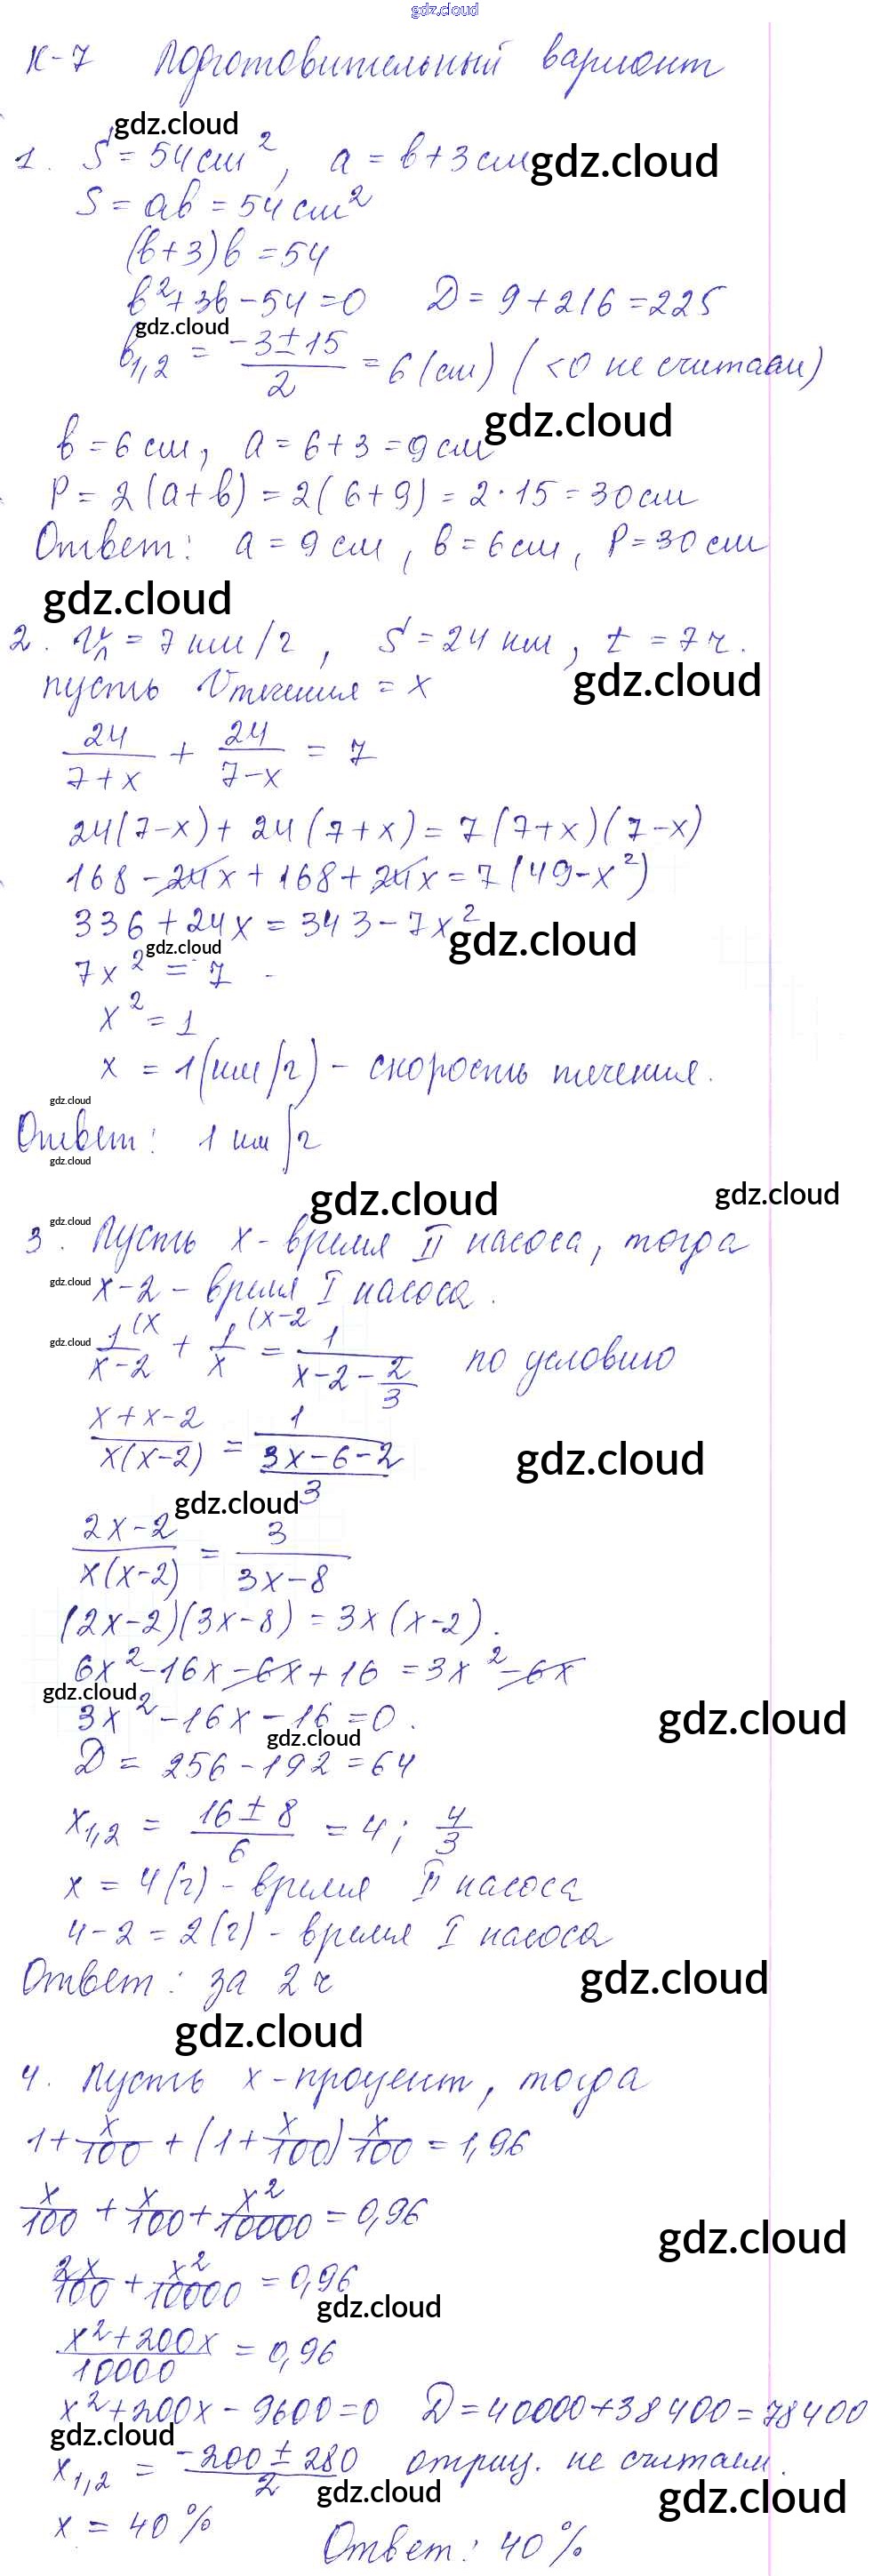 gdz.cloud
К-7 Подготовительный вариант
gdz.cloud
1. S = 54 см², a = b + 3 см gdz.cloud
S = ab = 54 см²
(b+3)b = 54
b² + 3b - 54 = 0 D = 9 + 216 = 225
gdz.cloud
b₁,₂ = (-3 ± 15)/2 = 6 (см) (<0 не считаем)
gdz.cloud
b = 6 см, a = 6 + 3 = 9 см
P = 2(a+b) = 2(6+9) = 2·15 = 30 см
Ответ: a = 9 см, b = 6 см, P = 30 см
gdz.cloud
2. Vл = 7 км/г, S = 24 км, t = 7 ч.
пусть Vтечения = x gdz.cloud
24/(7+x) + 24/(7-x) = 7
24(7-x) + 24(7+x) = 7(7+x)(7-x)
168 - 24x + 168 + 24x = 7(49-x²)
336 + 24x = 343 - 7x² gdz.cloud
gdz.cloud
7x² = 7
x² = 1
x = 1 (км/г) - скорость течения.
gdz.cloud
Ответ: 1 км/г
gdz.cloud
gdz.cloud gdz.cloud
gdz.cloud
3. Пусть x - время II насоса, тогда
gdz.cloud x-2 - время I насоса.
gdz.cloud 1(x/(x-2) + 1(x-2/x = 1/(x-2-2/3) по условию
(x+x-2)/(x(x-2)) = 1/((3x-6-2)/3) gdz.cloud
gdz.cloud
(2x-2)/(x(x-2)) = 3/(3x-8)
(2x-2)(3x-8) = 3x(x-2).
6x² - 16x - 6x + 16 = 3x² - 6x
gdz.cloud
3x² - 16x - 16 = 0. gdz.cloud
gdz.cloud
D = 256 - 192 = 64
x₁,₂ = (16 ± 8)/6 = 4; 4/3
x = 4 (г) - время II насоса
4 - 2 = 2 (г) - время I насоса
Ответ: за 2 ч gdz.cloud
gdz.cloud
4. Пусть x - процент, тогда
1 + x/100 + (1 + x/100) x/100 = 1,96
x/100 + x/100 + x²/10000 = 0,96
gdz.cloud
2x/100 + x²/10000 = 0,96
gdz.cloud
(x² + 200x)/10000 = 0,96
x² + 200x - 9600 = 0 D = 40000 + 38400 = 78400
gdz.cloud
x₁,₂ = (-200 ± 280)/2 отриц. не считаем.
gdz.cloud gdz.cloud
x = 40 %
Ответ: 40 %